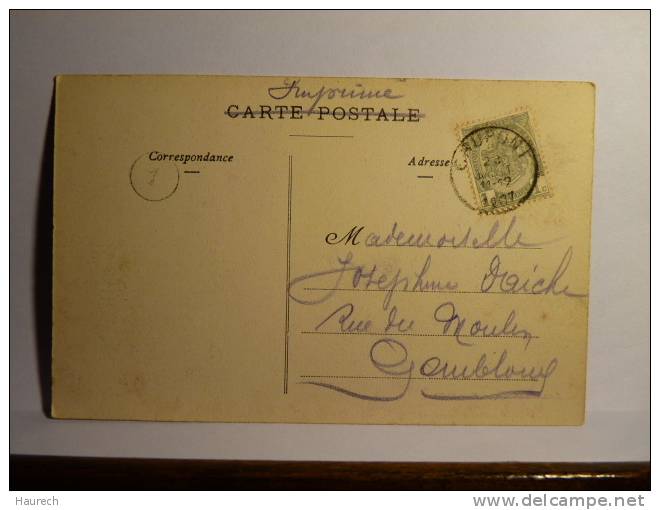 Imprimé
CARTE POSTALE
Correspondance
Adresse
1
GRUPONT
1907
Mademoiselle
Josephine
Rue du Moulin
Gembloux
Haurech
delcampe.net